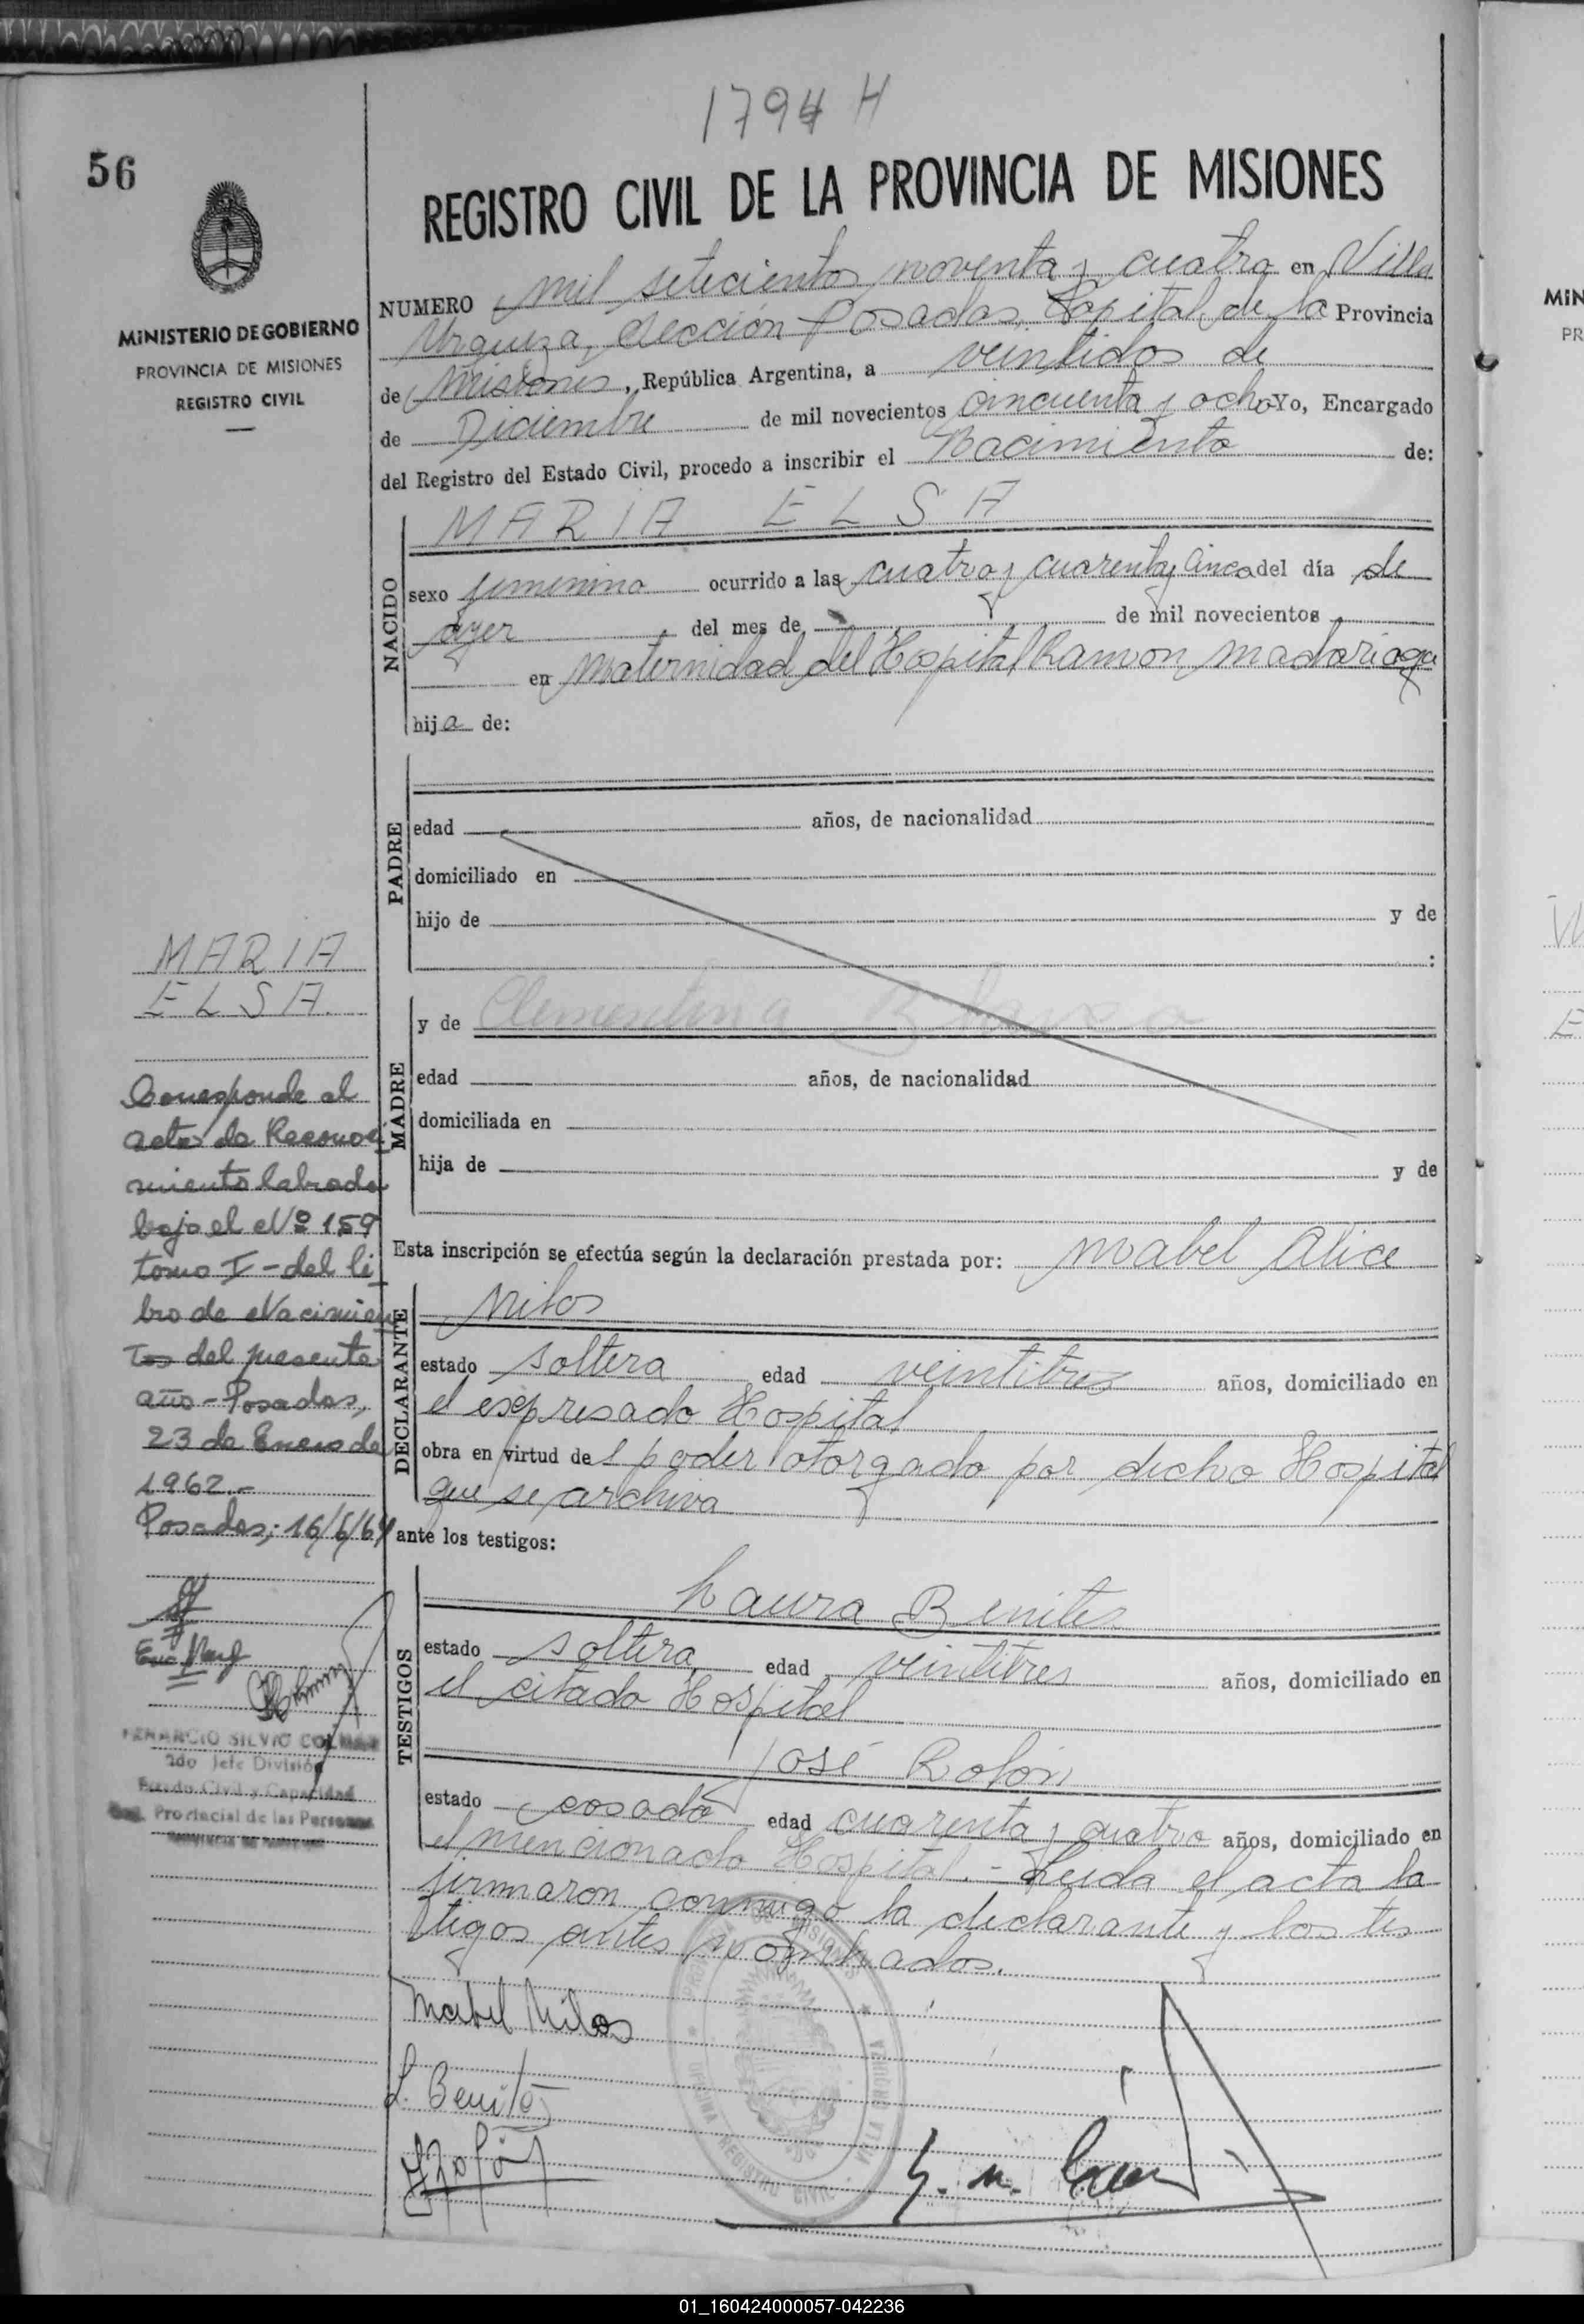 1794 H
56
REGISTRO CIVIL DE LA PROVINCIA DE MISIONES
MINISTERIO DE GOBIERNO
PROVINCIA DE MISIONES
REGISTRO CIVIL
NUMERO mil setecientos noventa y cuatro en Villa
Urquiza, Sección Posadas, Capital de la Provincia
de Misiones, República Argentina, a veintidos de
de Diciembre de mil novecientos cincuenta y ocho Yo, Encargado
del Registro del Estado Civil, procedo a inscribir el Nacimiento de:
NACIDO
MARIA ELSA
sexo femenino ocurrido a las cuatro y cuarenta y cinco del día de
ayer del mes de de mil novecientos
en Maternidad del Hospital Ramon Madariaga
hija de:
PADRE
edad años, de nacionalidad
domiciliado en
hijo de y de
:
MADRE
y de Clementina
edad años, de nacionalidad
domiciliada en
hija de y de
Esta inscripción se efectúa según la declaración prestada por: Mabel Alice
DECLARANTE
Milos
estado soltera edad veintitres años, domiciliado en
el expresado Hospital
obra en virtud del poder otorgado por dicho Hospital
que se archiva
ante los testigos:
TESTIGOS
Laura Benites
estado soltera, edad veintitres años, domiciliado en
el citado Hospital
José Rolón
estado casado edad cuarenta y cuatro años, domiciliado en
el mencionado Hospital.- Leida el acta la
firmaron conmigo la declarante y los tes
tigos antes nombrados.
Mabel Milos
L. Benites
J Rolón
MARIA
ELSA.
Corresponde al
acta de Reconoci
miento labrada
bajo el Nº 159
tomo I - del li
bro de Nacimien
tos del presente
año - Posadas,
23 de Enero de
1962.-
Posadas; 16/6/64
SILVIO
2do Jefe División
Estado Civil y Capacidad
Provincial de las Personas
OFICINA REGISTRO CIVIL
VILLA URQUIZA
MIN
PR
01_160424000057-042236